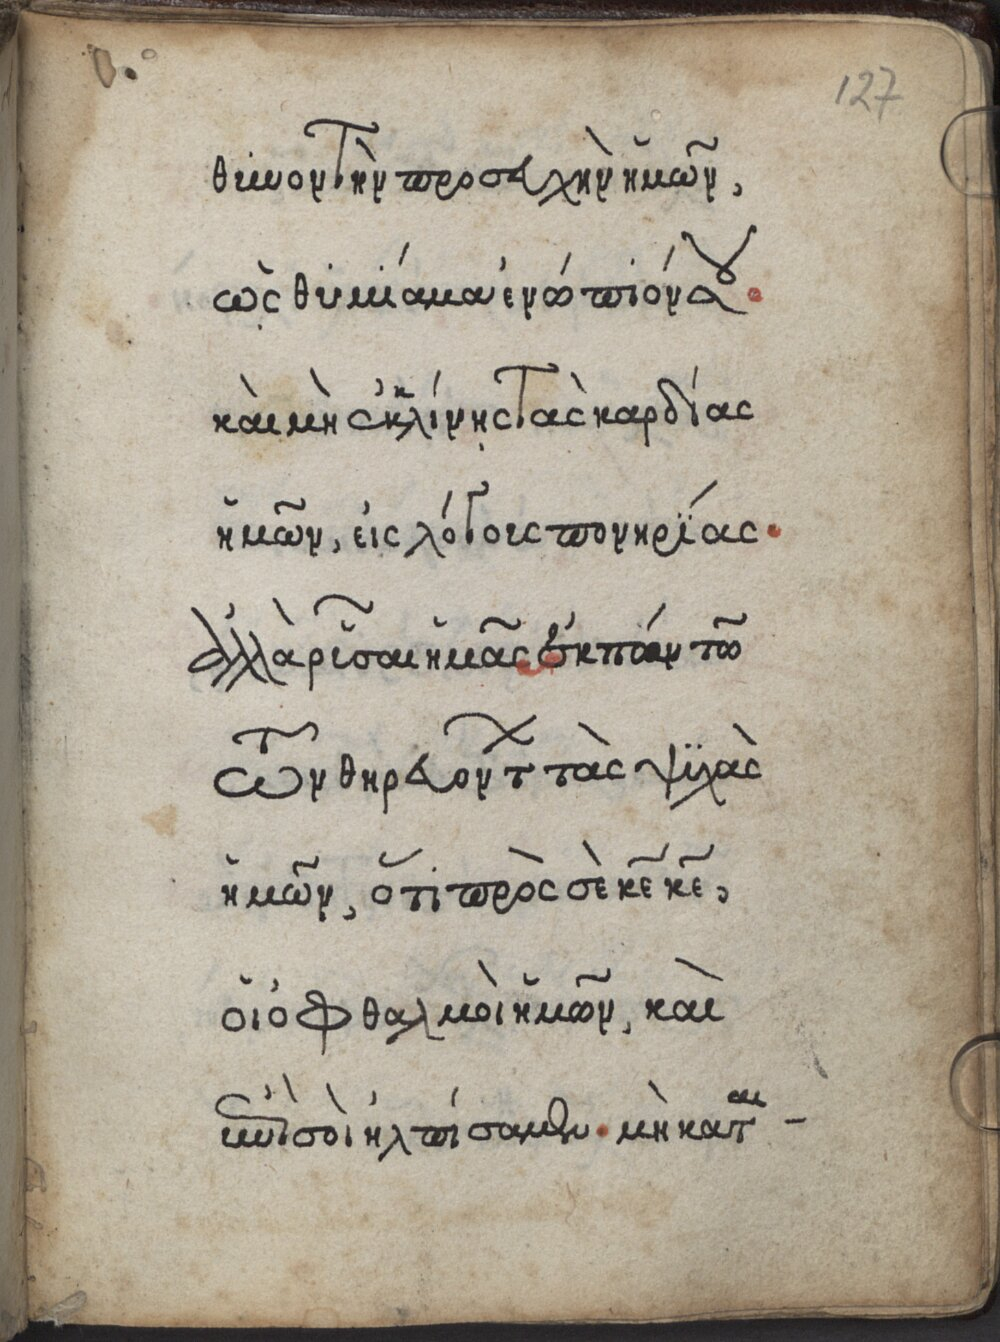 127
θυνον τὴν προσευχὴν ἡμῶν,
ὡς θυμίαμα ἐνώπιόν σου·
καὶ μὴ ἐκκλίνῃς τὰς καρδίας
ἡμῶν, εἰς λόγους πονηρίας·
ἀλλὰ ῥῦσαι ἡμᾶς ἐκ πάντων
τῶν θηρευόντων τὰς ψυχὰς
ἡμῶν, ὅτι πρὸς σὲ κε κε,
οἱ ὀφθαλμοὶ ἡμῶν, καὶ
ἐπὶ σοὶ ἠλπίσαμεν· μὴ καται-